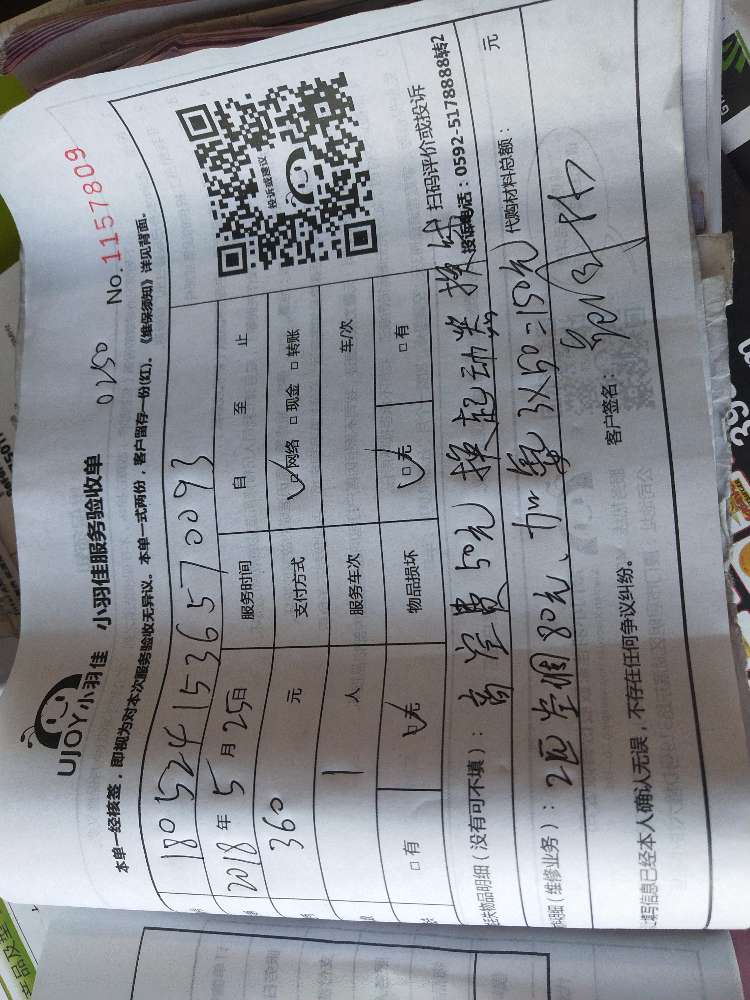 UJOY小羽佳 小羽佳服务验收单
0250 No. 1157809
本单一经核签,即视为对本次服务验收无异议。本单一式两份,客户留存一份(红)。《维保须知》详见背面。
180524153657 0093
2018年5月25日 服务时间 自 至 止
360 元 支付方式 □网络 □现金 □转账
1 人 服务车次 车/次
□有 □无 物品损坏 □无 □有
投诉或建议
扫码评价或投诉
投诉电话:0592-5178888转2
物品明细(没有可不填): 高空费50元 换起动类 换
(维修业务): 2匹空调80元、加氟3X50=150元 代购材料总额: 元
写信息已经本人确认无误,不存在任何争议纠纷。 客户签名: